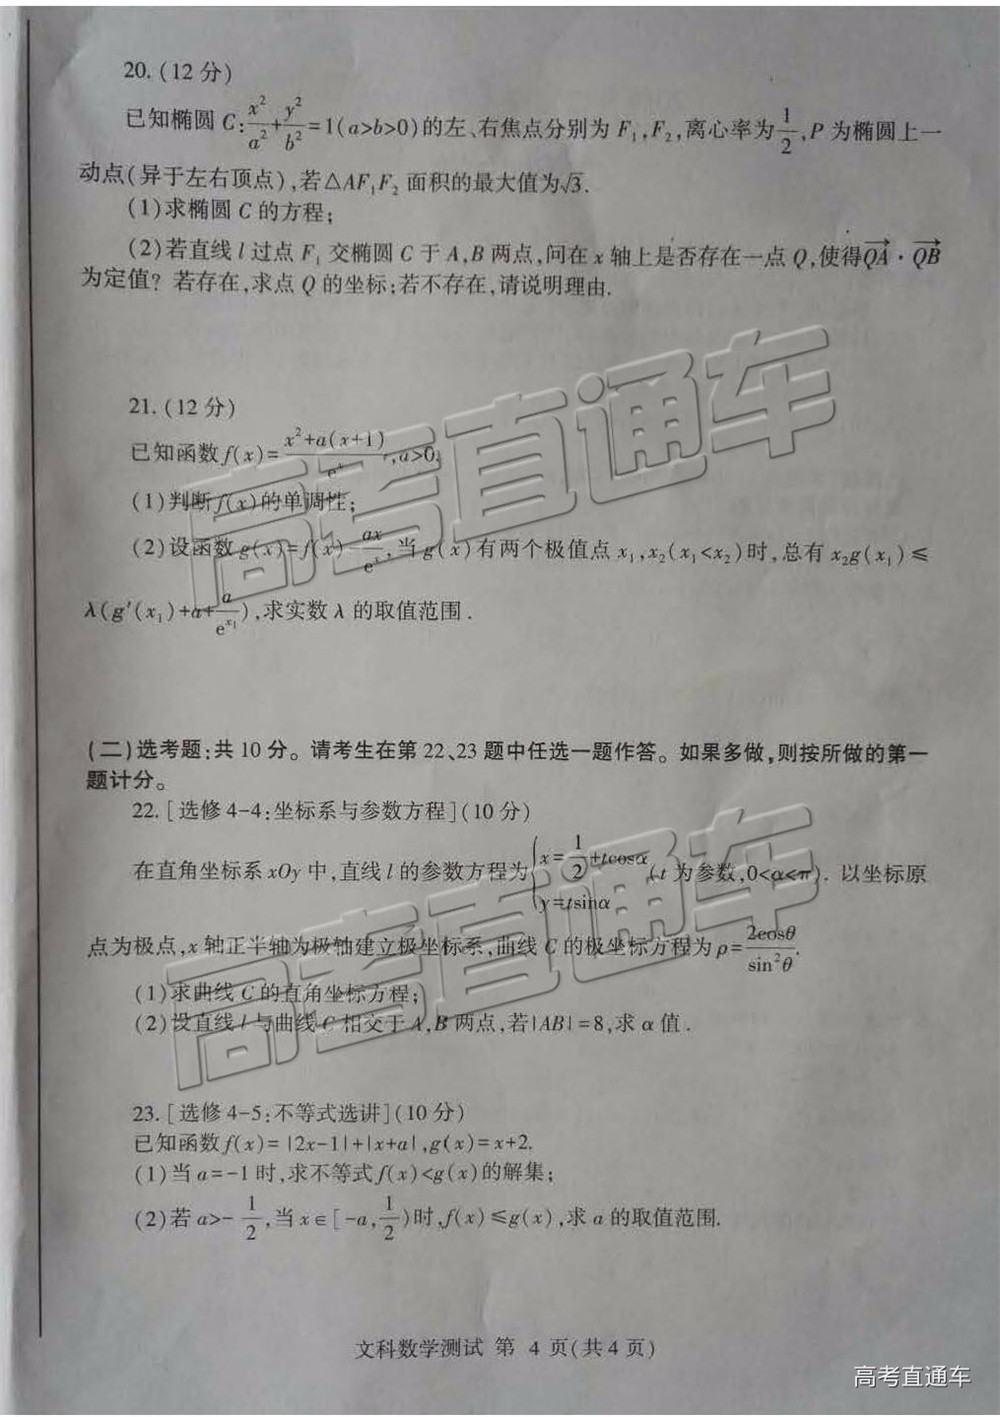 20. (12 分)
已知椭圆 C: x²/a² + y²/b² = 1(a>b>0)的左、右焦点分别为 F₁,F₂,离心率为 1/2, P 为椭圆上一
动点(异于左右顶点),若△AF₁F₂ 面积的最大值为√3.
(1)求椭圆 C 的方程;
(2)若直线 l 过点 F₁ 交椭圆 C 于 A,B 两点,问在 x 轴上是否存在一点 Q,使得QA→·QB→
为定值? 若存在,求点 Q 的坐标;若不存在,请说明理由.
21. (12 分)
已知函数 f(x)= (x²+a(x+1))/eˣ, a>0.
(1)判断 f(x)的单调性;
(2)设函数 g(x)=f(x) ax/eˣ, 当 g(x)有两个极值点 x₁,x₂(x₁<x₂)时,总有 x₂g(x₁)≤
λ(g′(x₁)+a+ a/e^(x₁)),求实数 λ 的取值范围.
(二)选考题:共 10 分。请考生在第 22、23 题中任选一题作答。如果多做,则按所做的第一
题计分。
22. [选修 4-4:坐标系与参数方程](10 分)
在直角坐标系 xOy 中,直线 l 的参数方程为 {x= 1/2 +tcosα, y=tsinα (t 为参数,0<α<π). 以坐标原
点为极点,x 轴正半轴为极轴建立极坐标系,曲线 C 的极坐标方程为 ρ= 2cosθ/sin²θ.
(1)求曲线 C 的直角坐标方程;
(2)设直线 l 与曲线 C 相交于 A,B 两点,若|AB|=8,求 α 值.
23. [选修 4-5:不等式选讲](10 分)
已知函数 f(x)= |2x-1|+|x+a|,g(x)=x+2.
(1)当 a=-1 时,求不等式 f(x)<g(x)的解集;
(2)若 a>- 1/2,当 x∈[-a, 1/2)时,f(x)≤g(x),求 a 的取值范围.
文科数学测试 第 4 页(共 4 页)
高考直通车
高考直通车
高考直通车